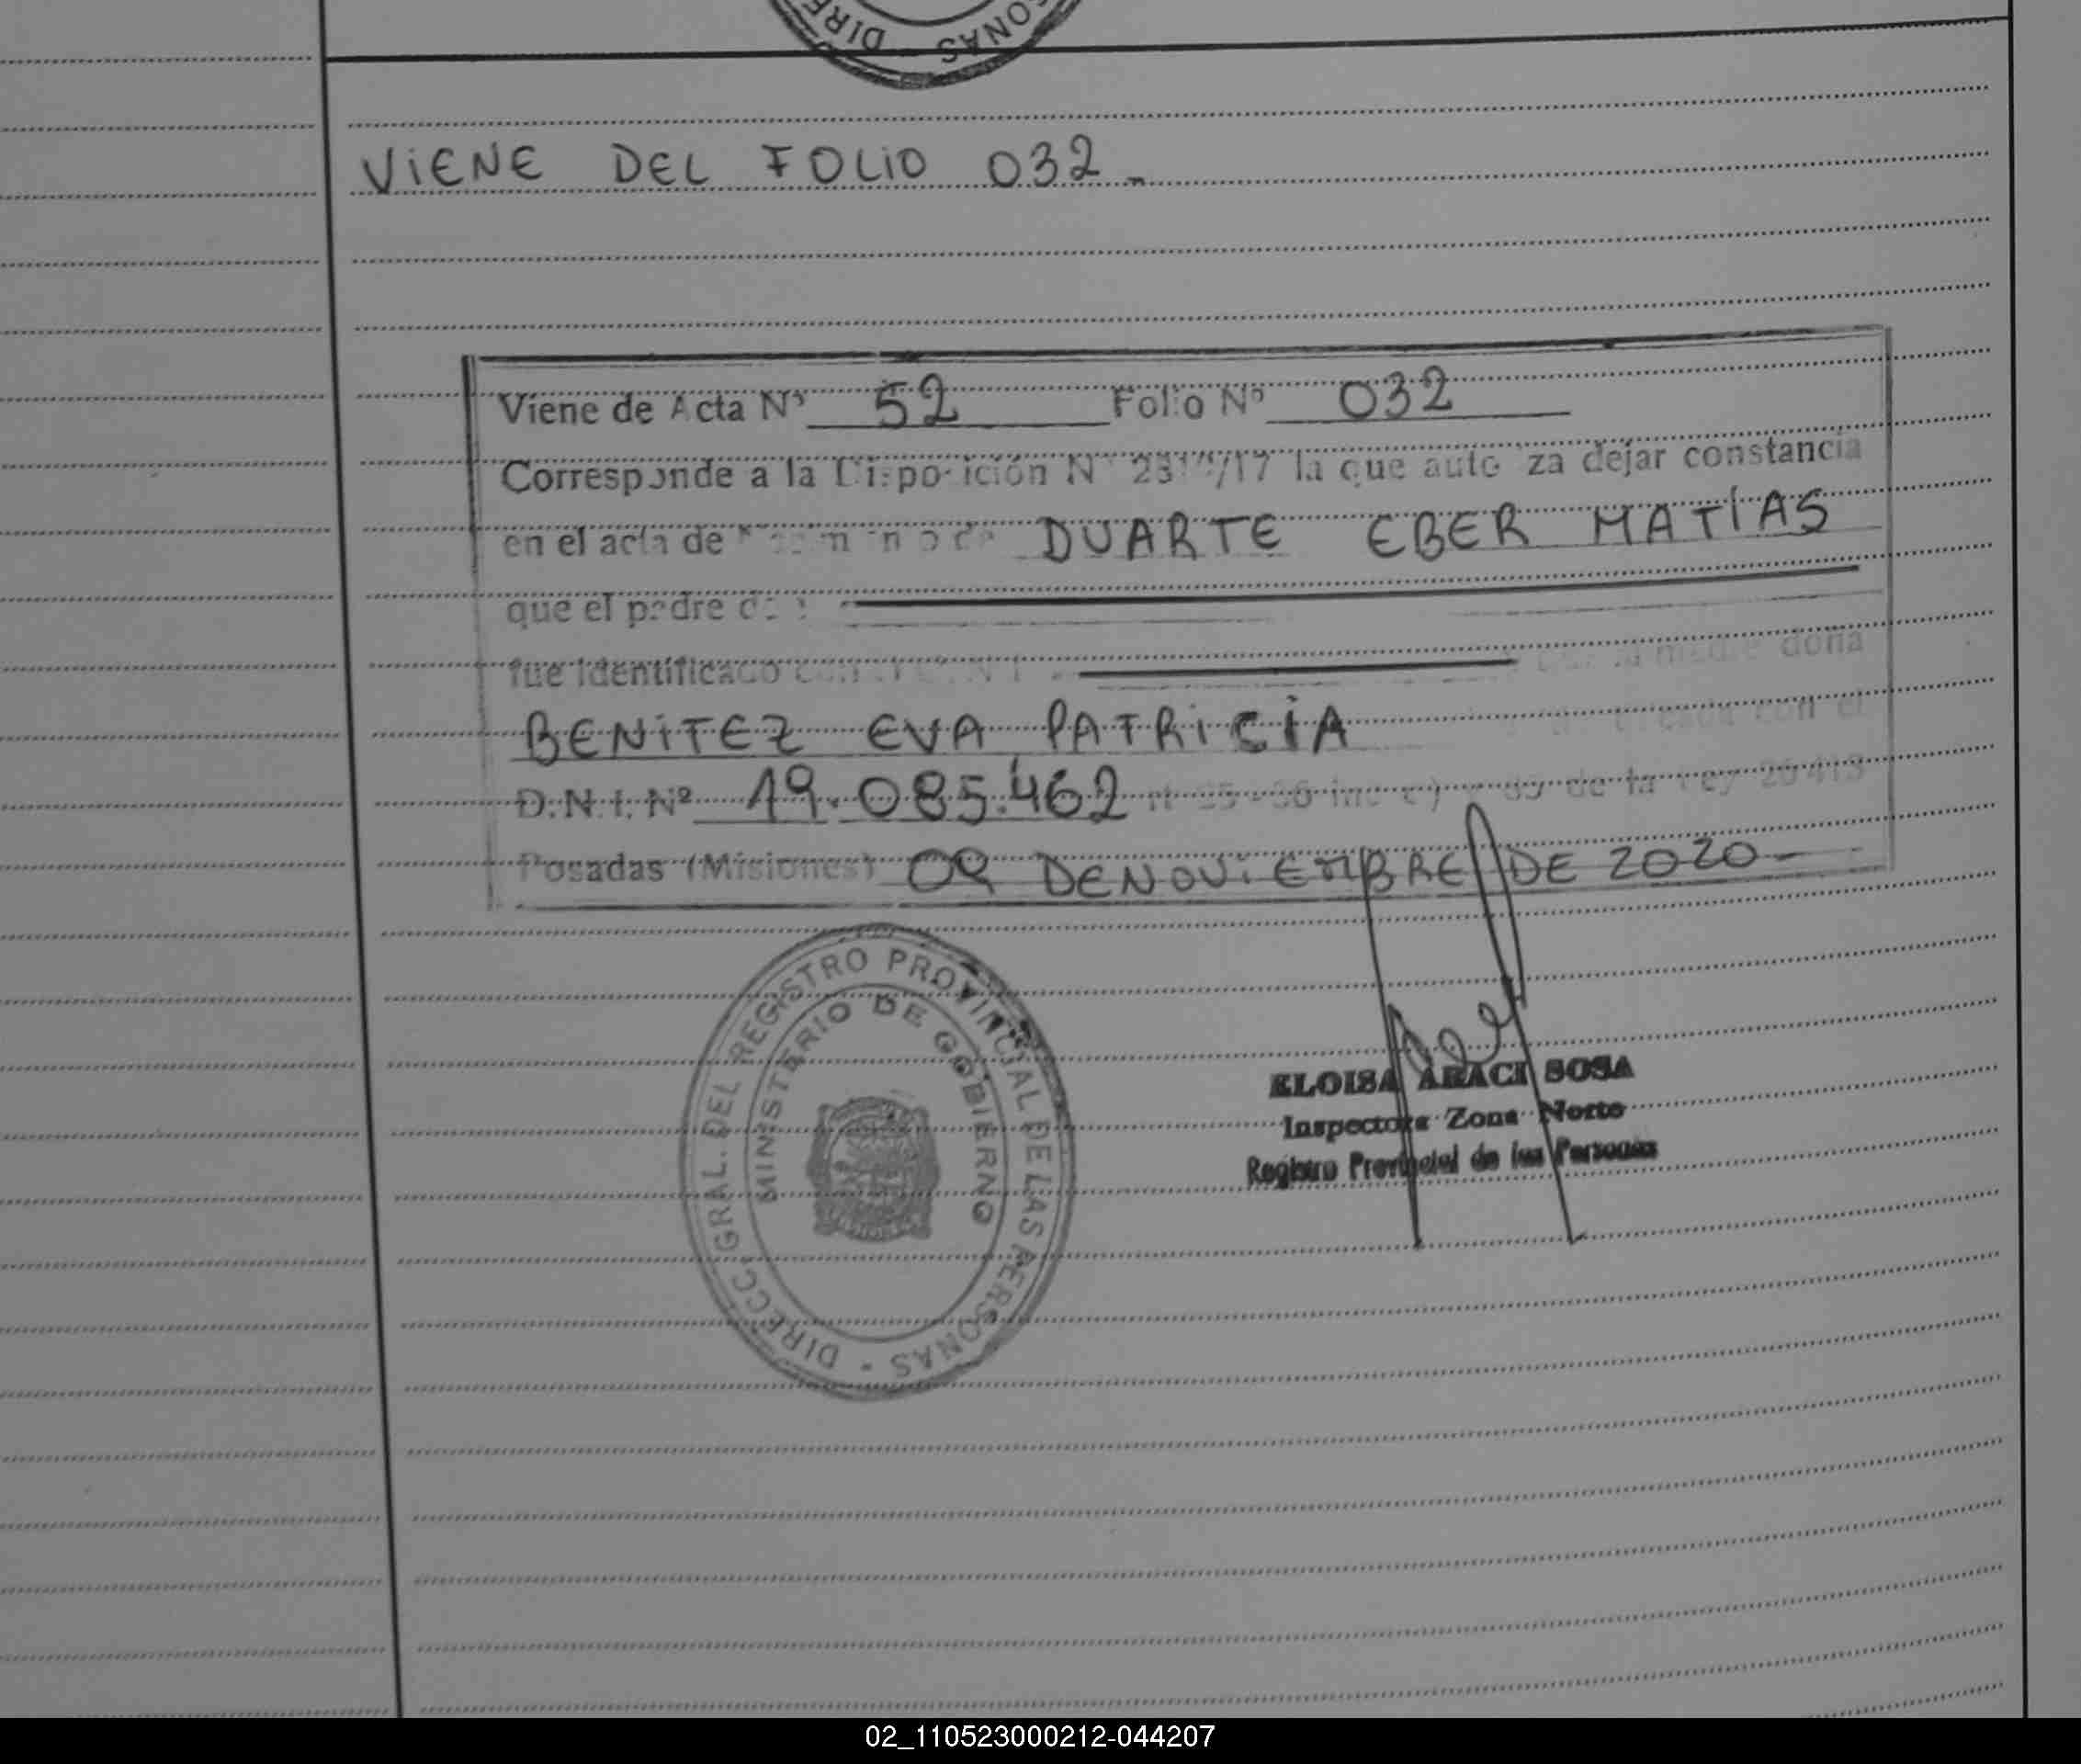 DIRE
SONAS
VIENE DEL FOLIO 032-
Viene de Acta Nº 52 Folio Nº 032
Corresponde a la Disposición Nº /17 la que autoriza dejar constancia
en el acta de DUARTE EBER MATÍAS
que el padre
fue identificado la madre doña
BENITEZ EVA PATRICIA
con el
D.N.I. Nº 19.085.462 de la Ley 26413
Posadas (Misiones) 09 DE NOVIEMBRE DE 2020-
DIRECC. GRAL. DEL REGISTRO PROVINCIAL DE LAS PERSONAS -
MINISTERIO DE GOBIERNO
ELOISA ARACI SOSA
Inspectora Zona Norte
Registro Provincial de las Personas
02_110523000212-044207